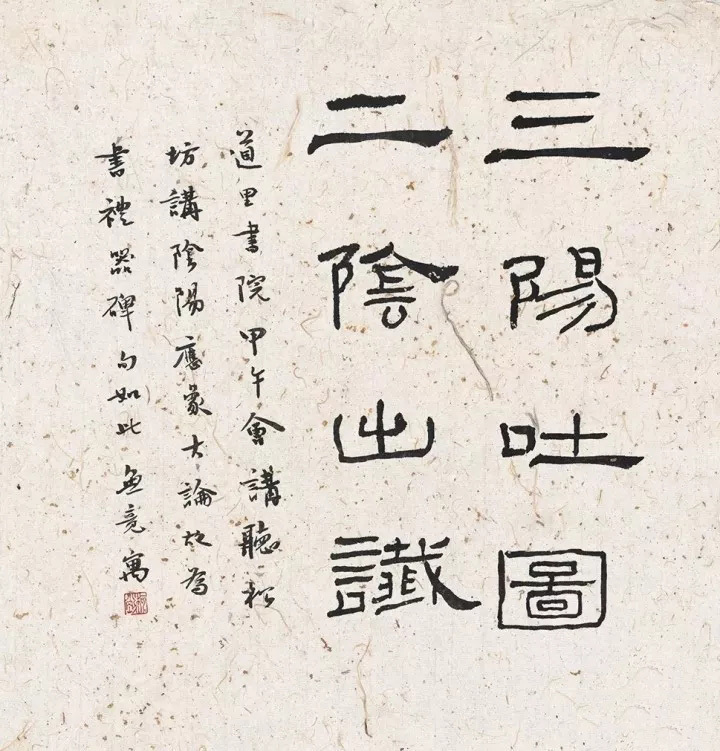 三陽吐圖
二陰出讖
道里書院甲午會講聽松
坊講陰陽應象大論故為
書禮器碑句如此 無竟寓